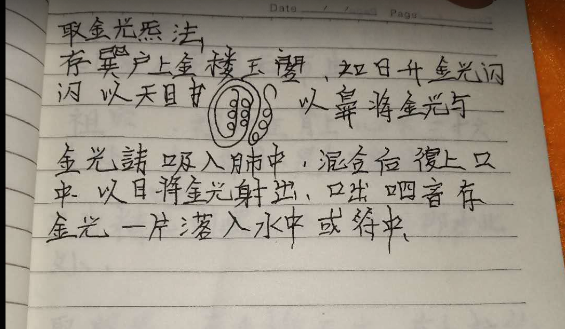 Date / / Page
取金光炁法
存巽户上金楼玉闕，如日升金光闪
闪以天目 以鼻将金光与
金光諱吸入肺中，混合后復上口
中.以目将金光射出，口出呬音存
金光一片落入水中或符中、